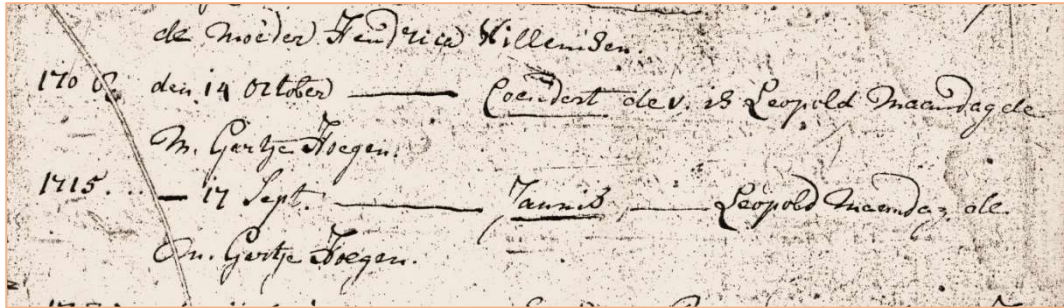 de Moeder Hendrica Willemsen.
1706 den 14 October — Coendert de v. is Leopold Maandag de
M. Gertje Hoegen.
1715. — 17 Sept. — Jannis — Leopold Maandag, de
M. Gertje Hoegen.